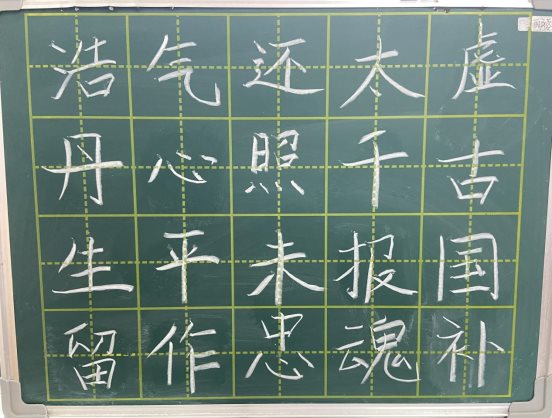 浩气还太虚
丹心照千古
生平未报国
留作忠魂补